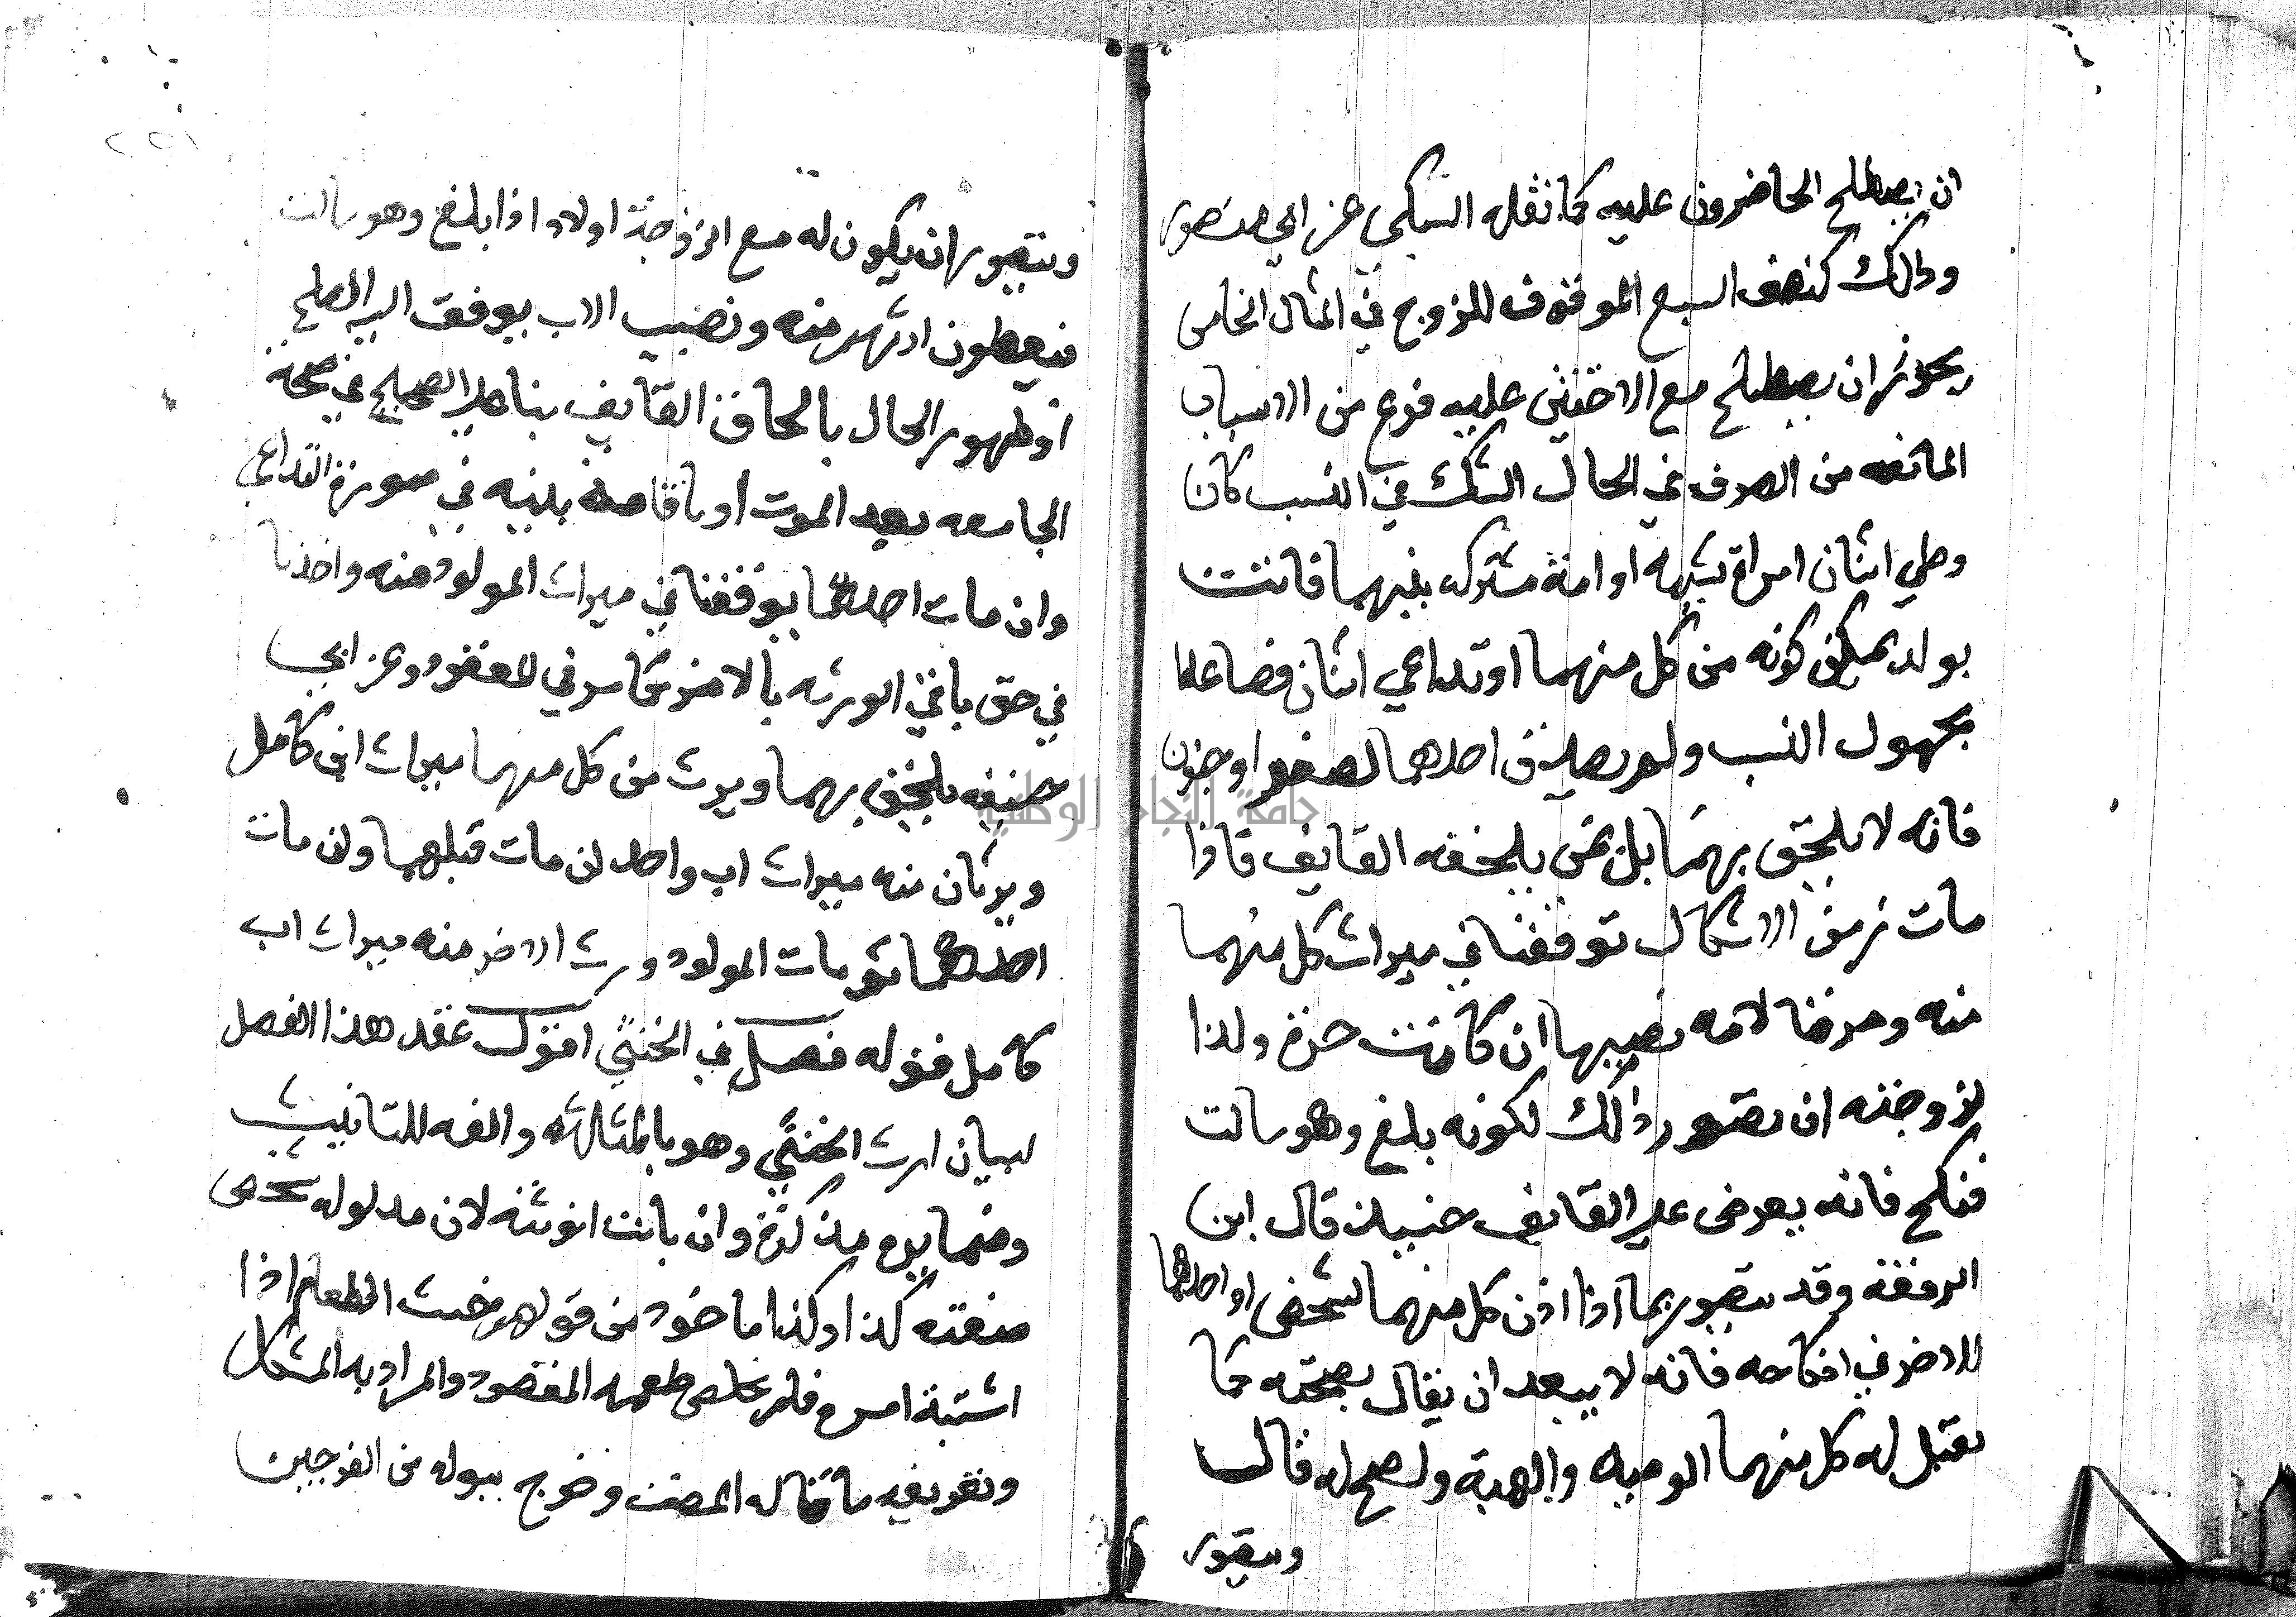 ان يصطلح الحاضرون عليه كما نقله السبكي عن ابي منصور
وذلك كنصف السبع الموقوف للزوج في المثال الخامس
يجوز ان يصطلح مع الاختين عليه فرع من الاسباب
المانعه من الصرف في الحال الشك في النسب كان
وطي اثنان امراة بشبهه او امة مشتركه بينهما فاتت
بولد يمكن كونه من كل منهما او تداعي اثنان فصاعدا
مجهول النسب ولم يصدق احدهما لصغر او جنون
فانه لا يلحق بهما بل بمن يلحقه القايف فاذا
مات زمن الاشكال توقفنا في ميراث كل منهما
منه وصرفنا لامه نصيبها ان كانت حرة ولذا
لزوجته ان تصور ذلك لكونه بلغ وهو ساكت
فنكح فانه يعرض علي القايف حينيذ قال ابن
الرفعه وقد يتصور بما اذا اذن كل منهما لشخص او احدهما
للاخر في انكاحه فانه لا يبعد ان يقال بصحته كما
يقبل له كل منهما الوصيه والهبة ولصح له قال
ويتصور
ويتصور ان يكون له مع الزوجة اولاد اذا بلغ وهو ساكت
فيعطون ارثهم منه ونصيب الاب يوقف الي الصلح
او ظهور الحال بالحاق القايف بنا علي الصحيح في صحة
الجامعه بعد الموت او باقامة بينه في صورة التداعي
وان مات احدهما توقفنا في ميراث المولود منه واخذنا
في حق باقي الورثه بالاضر كما مر في المفقود وعن ابي
حنيفه يلحق بهما ويرث من كل منهما ميراث ابن كامل
ويرثان منه ميراث اب واحد ان مات قبلهما وان مات
احدهما ثم مات المولود ورث الاخر منه ميراث اب
كامل قوله فصل في الخنثي اقول عقد هذا الفصل
لبيان ارث الخنثي وهو بالمثلثه والفه للتانيث
وضمايره مذكرة وان بانت انوثته لان مدلوله شخص
صفته كذا وكذا ماخوذ من قولهم خنث الطعام اذا
اشتبه امره فلم يخلص طعمه المقصود والمراد به المشكل
وتعريفه ما قاله المصنف وخرج ببوله من الفرجين
جامعة النجاح الوطنية